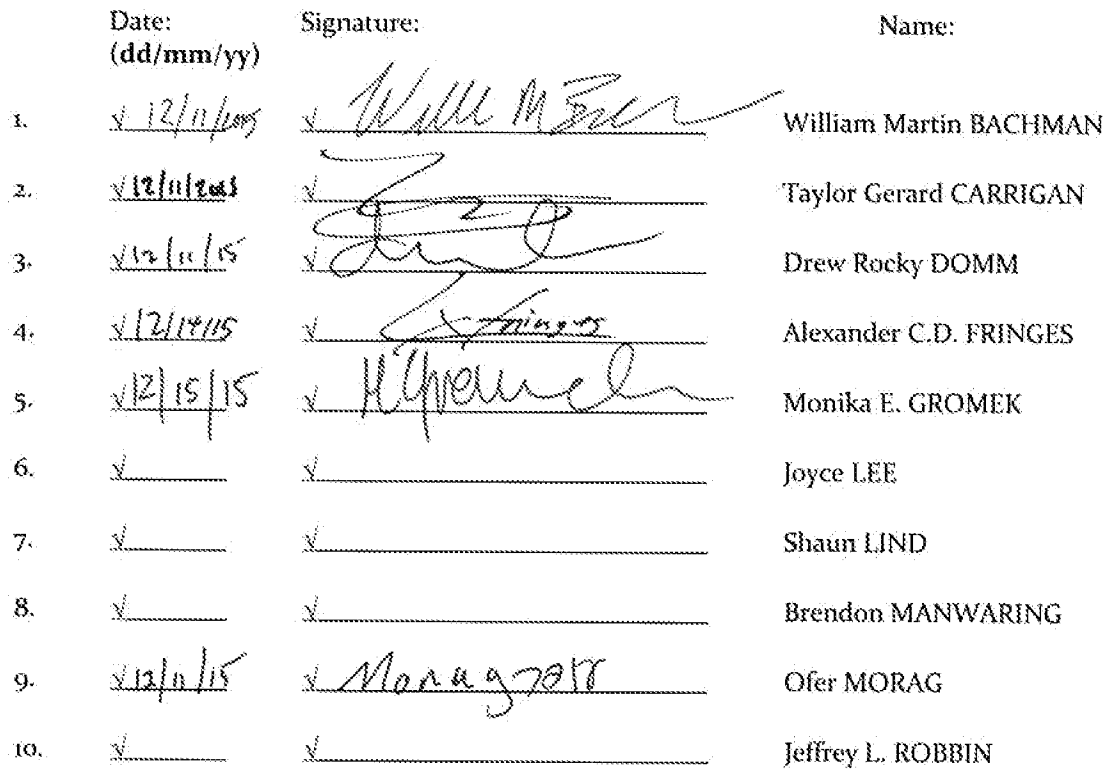 Date: Signature: Name:
(dd/mm/yy)
1. √ 12/11/2015 √ William Martin BACHMAN
2. √ 12/11/2015 √ Taylor Gerard CARRIGAN
3. √ 12/11/15 √ Drew Rocky DOMM
4. √ 12/14/15 √ Fringes Alexander C.D. FRINGES
5. √ 12/15/15 √ Monika E. GROMEK
6. √ √ Joyce LEE
7. √ √ Shaun LIND
8. √ √ Brendon MANWARING
9. √ 12/11/15 √ Morag Ofer MORAG
10. √ √ Jeffrey L. ROBBIN